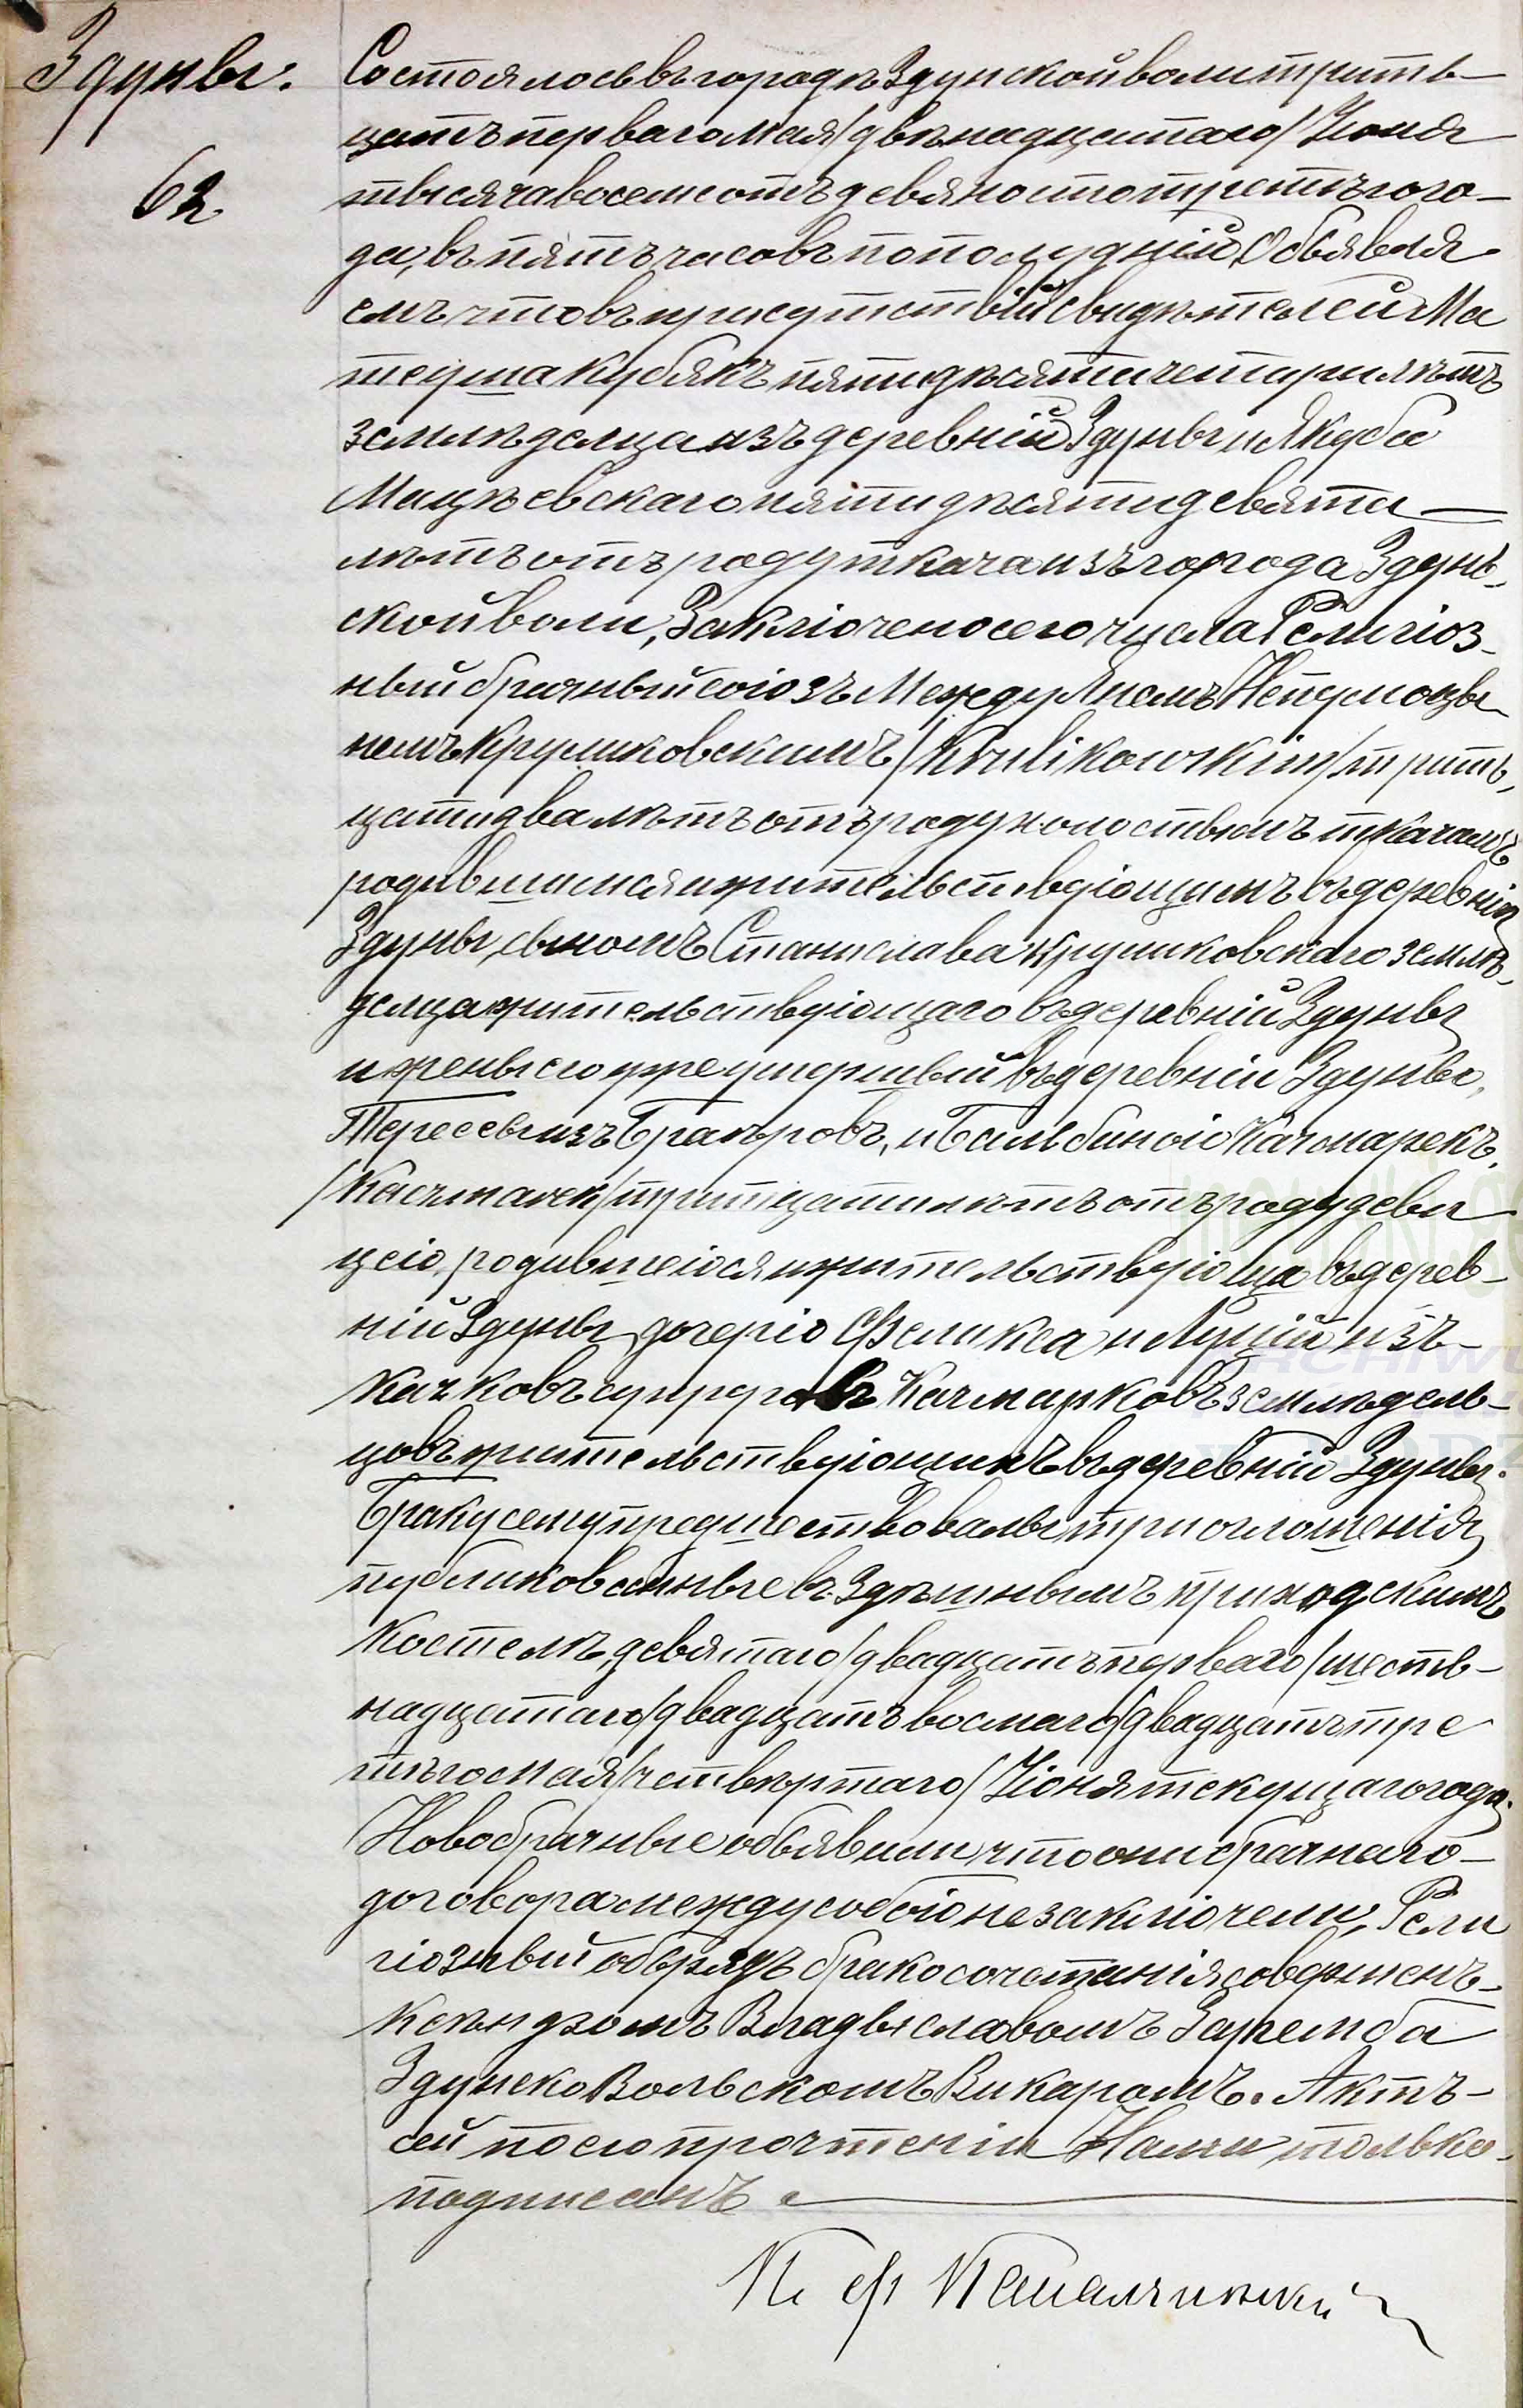 Здуны.
62.
Состоялось въ городѣ Здунской воли трить-
цать перваго Мая /двѣнадцатаго/ Іюня
тысяча восемсотъ девяносто третьего го-
да, въ пять часовъ пополудній, Объявля-
емъ что въ присутствій свидѣтелей Ма
теуша Кубякъ пятидѣсяти четыри лѣтъ
земледелца изъ деревній Здуны и Якуба
Мацѣевскаго пятидѣсяти девята
лѣтъ отъ роду ткача изъ города Здунь-
ской воли, Заключено сего числа Религіоз-
ный брачный союзъ Между Яномъ Непумоцы
немъ Круликовскимъ /Krulikowskim/ трить-
цати два лѣтъ отъ роду холостымъ ткачамъ
родившимся и жительствующимъ въ деревній
Здуны, сыномъ Станислава Круликовскаго землѣ-
делца жительствующаго въ деревній Здуны
и жены его уже уморшвый въ деревніи Здуны,
Тересевы изъ Браеровъ, и Бальбиною Качмарекъ,
/Kaczmarek/ тритцати лѣтъ отъ роду деви
цею, родившеюся и жительствующа въ дерев-
ній Здуны дочерію Феликса и Луцій изъ-
Качковъ супруговъ Качмарковъ земледель-
цовъ жительствующихъ въ деревній Здуны.
Браку сему предшествовалы три оглошенія
публикованные въ Здѣшнымъ приходскимъ
Костелѣ, девятаго /двадцать перваго/ шесть-
надцатаго /двадцать восмаго/ двадцать тре
тьего Мая /четвѣртаго/ Іюня текущаго года.
Новобрачные объявили что они брачнаго-
договора между собою не заключели, Рели
гіозный обрядъ бракосочетанія совершенъ-
Ксендзомъ Владыславомъ Заремба
Здунско Вольскомъ Викаромъ. Актъ-
сей по его прочтеніи Нами только-
подписанъ
К. Ф.